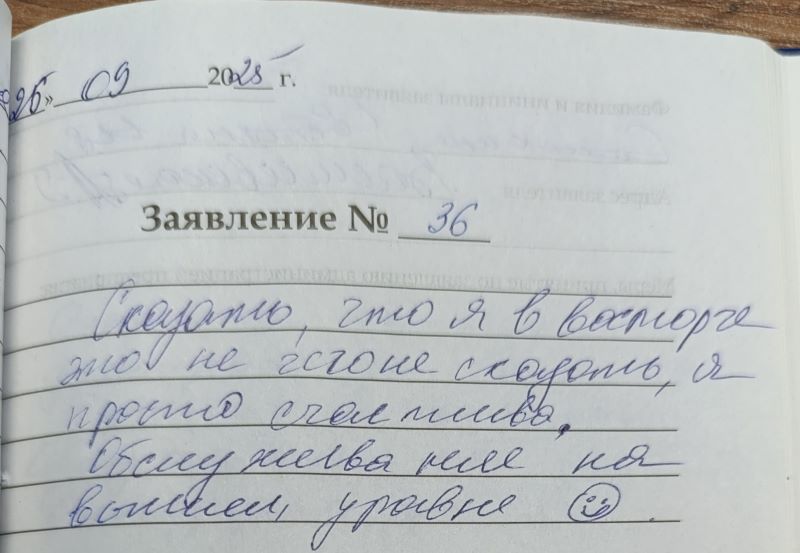 26» 09 2025 г.
Заявление № 36
Сказать, что я в восторге
это не чего не сказать, я
просто счастлива.
Обслуживание на
высшем уровне ☺.